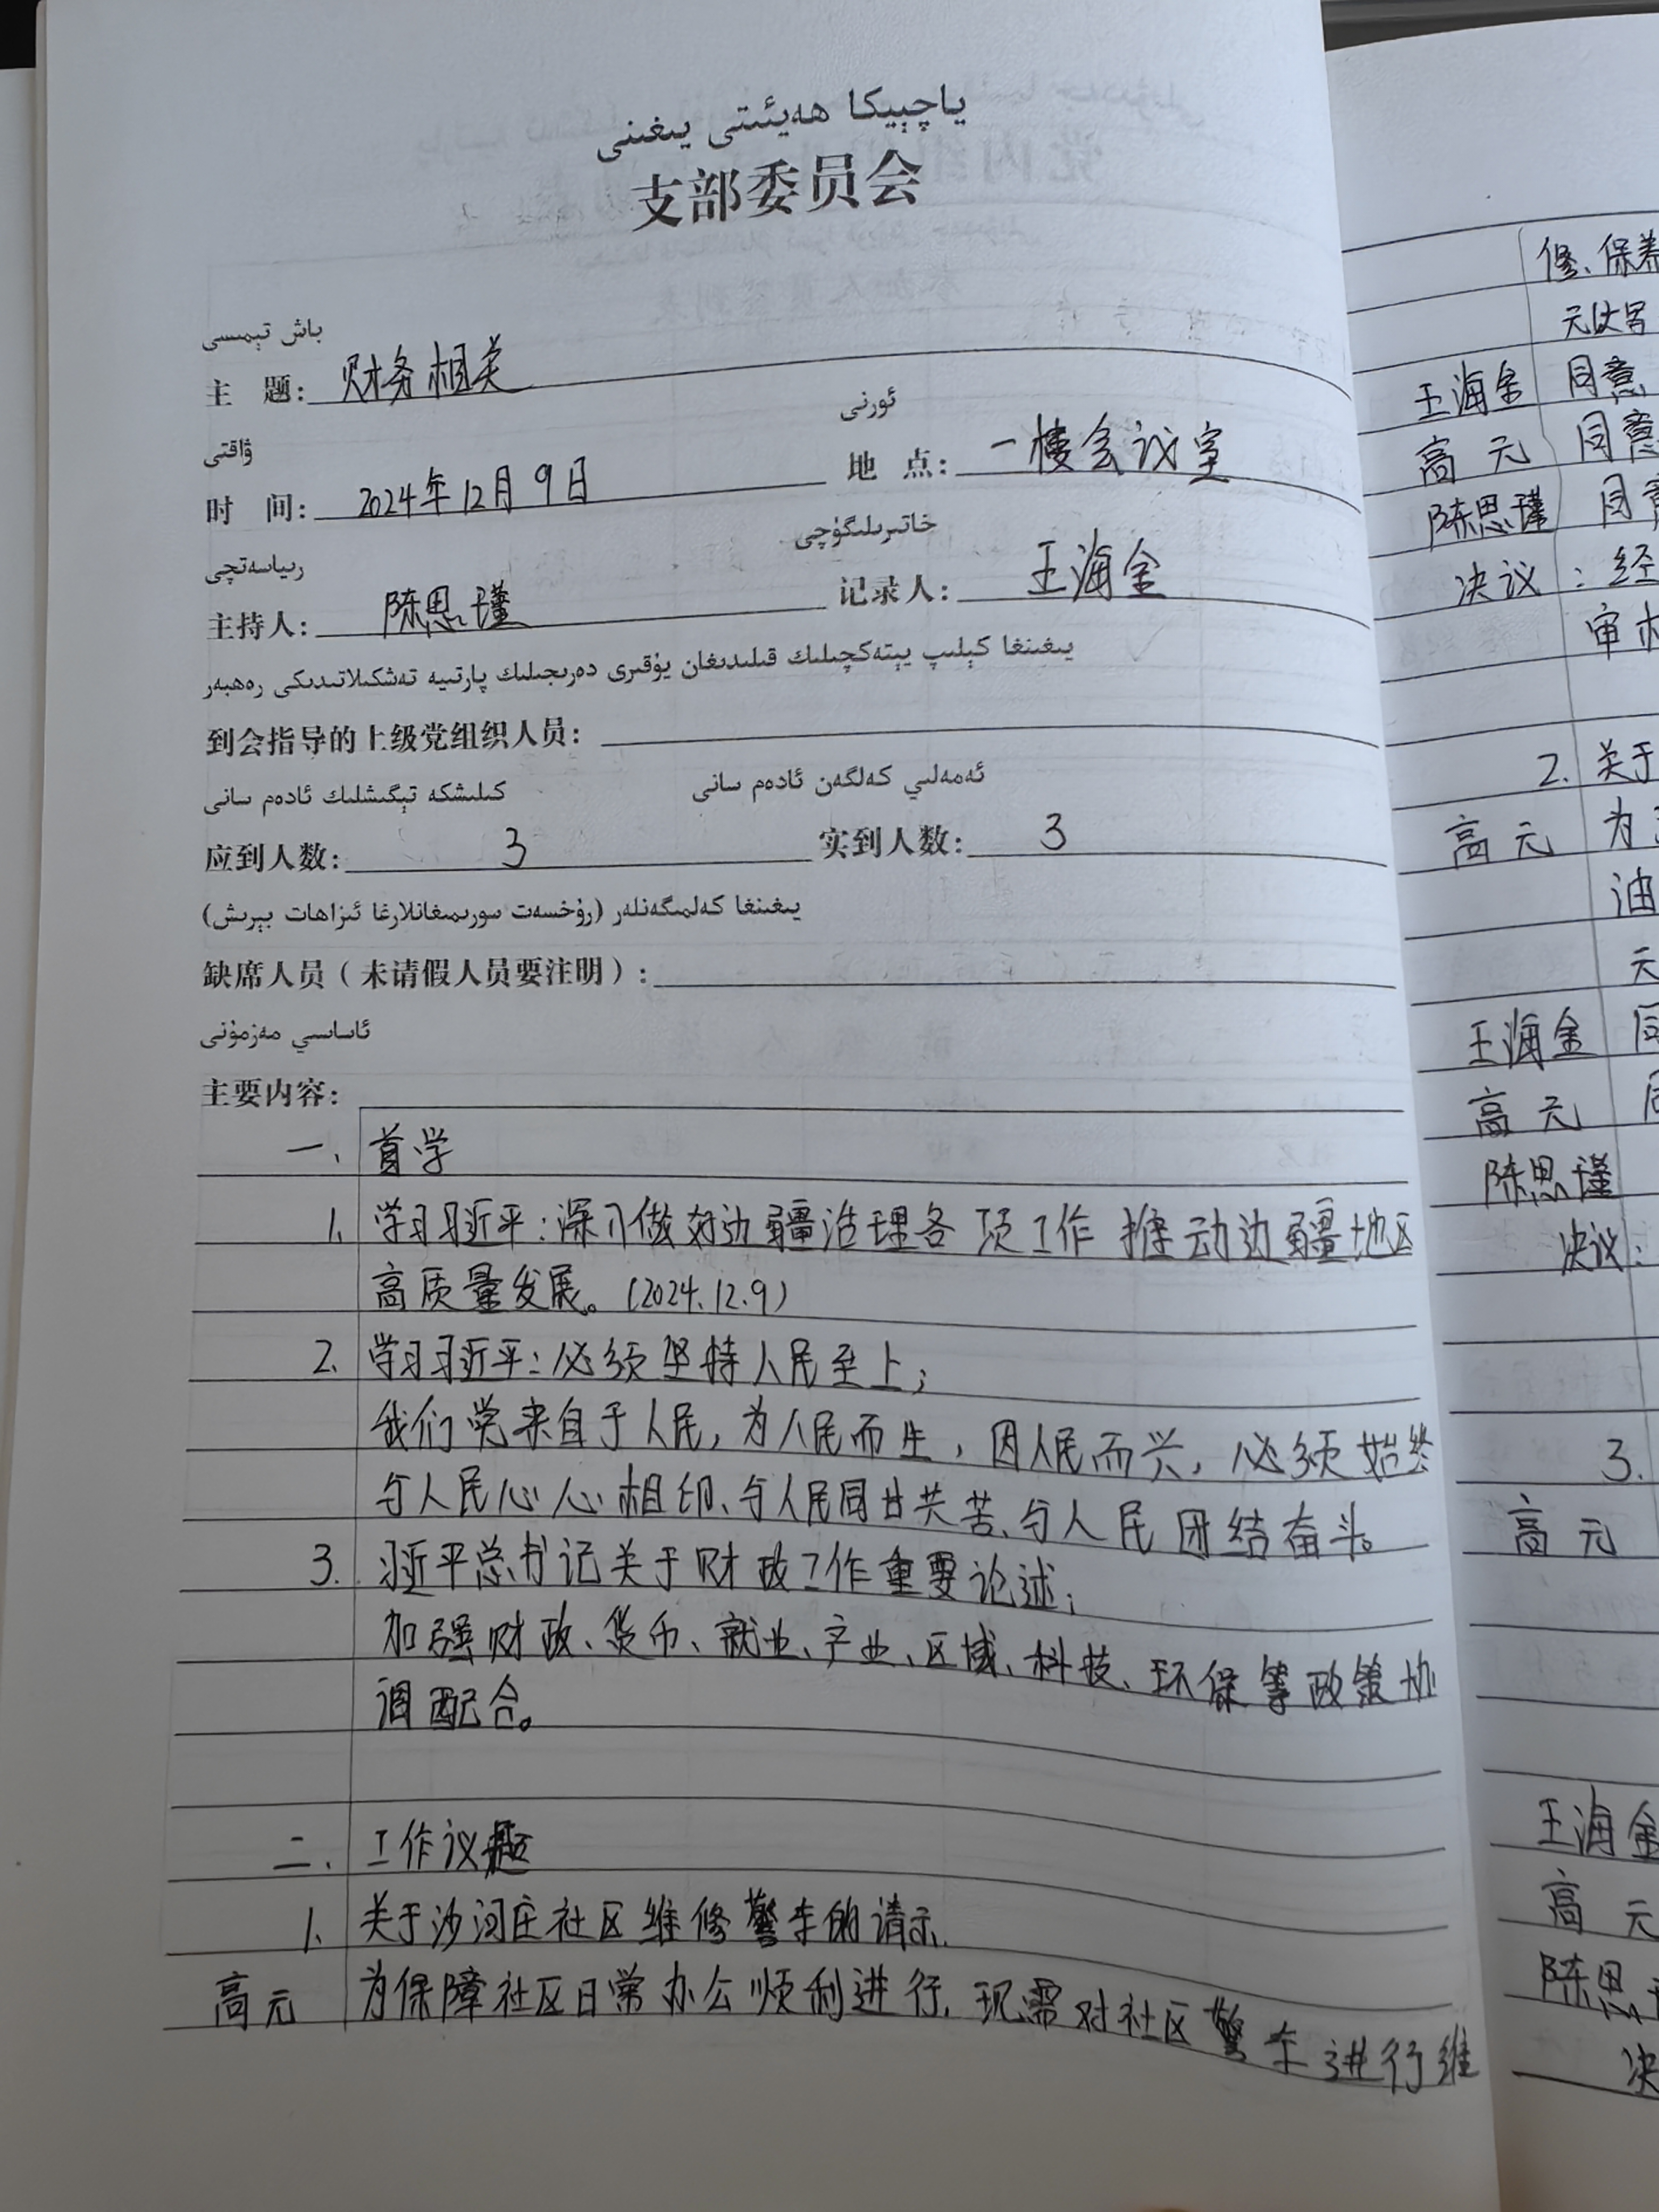 ياچېيكا ھەيئىتى يىغىنى
支部委员会
باش تېمىسى
主 题: 财务相关
ۋاقتى
ئورنى
时 间: 2024年12月9日 地 点: 一楼会议室
رىياسەتچى
خاتىرىلىگۈچى
主持人: 陈思瑾 记录人: 王海金
يىغىنغا كېلىپ يېتەكچىلىك قىلىدىغان يۇقىرى دەرىجىلىك پارتىيە تەشكىلاتىدىكى رەھبەر
到会指导的上级党组织人员:
كىلىشكە تېگىشلىك ئادەم سانى
ئەمەلىي كەلگەن ئادەم سانى
应到人数: 3 实到人数: 3
يىغىنغا كەلمىگەنلەر (رۇخسەت سورىمىغانلارغا ئىزاھات بېرىش)
缺席人员（未请假人员要注明）:
ئاساسىي مەزمۇنى
主要内容:
一、首学
1. 学习习近平:深入做好边疆治理各项工作 推动边疆地区
高质量发展。(2024.12.9)
2. 学习习近平:必须坚持人民至上;
我们党来自于人民,为人民而生,因人民而兴,必须始终
与人民心心相印、与人民同甘共苦、与人民团结奋斗。
3. 习近平总书记关于财政工作重要论述;
加强财政、货币、就业、产业、区域、科技、环保等政策协
调配合。
二、工作议题
1. 关于沙河庄社区维修警车的请示.
高元 为保障社区日常办公顺利进行,现需对社区警车进行维
修、保养
王海金 同意
高元 同意
陈思瑾 同意
决议:经
审
2. 关于
高元 为
油
元
王海金 同
高元
陈思瑾
决议:
3.
高元
王海金
高元
陈思
决